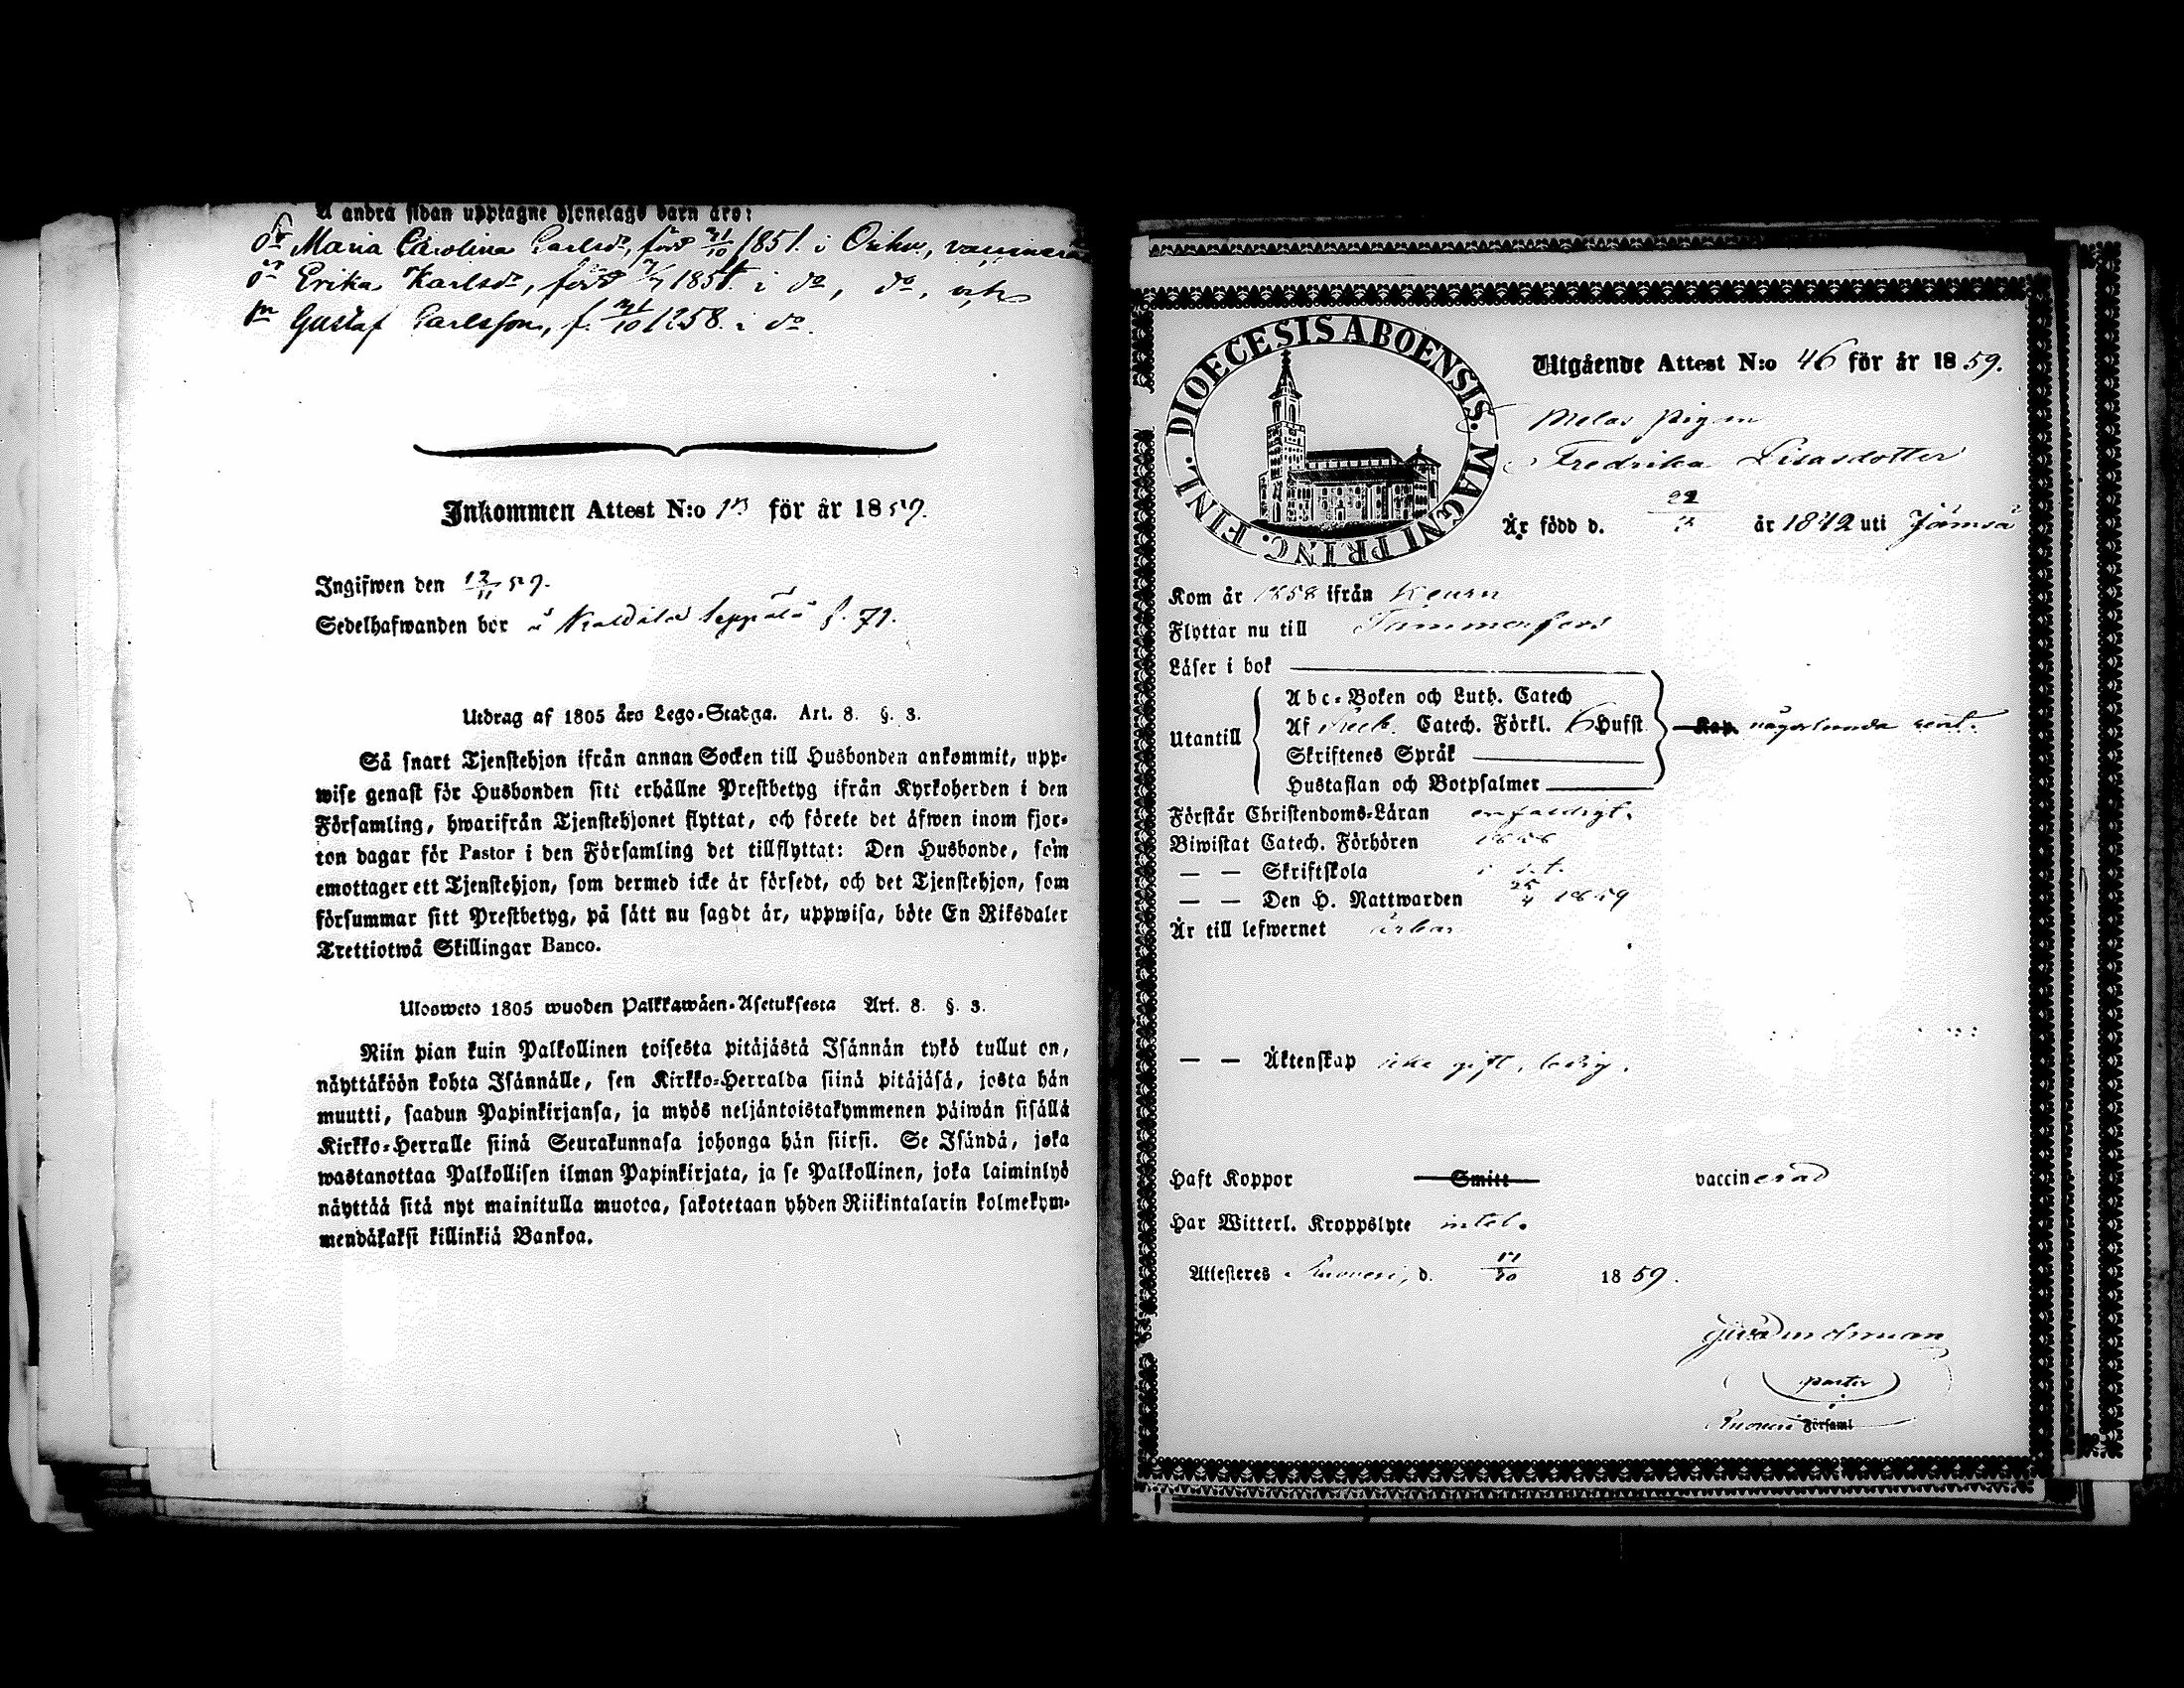 Å andra sidan upptagne hjonelags barn äro:
dr Maria Carolina Carlsdr, född 21/10 1851. i Orihv., vaccinerad
dr Erika Karlsdr, född 1854. i do, do, och
sn Gustaf Carlsson, f. 21/10 1858. i do.
Inkommen Attest N:o för år 1859.
Ingifwen den 12/11 59.
Sedelhafwanden bor å Seppälä f. 71.
Utdrag af 1805 års Lego-Stadga. Art. 8. §. 3.
Så snart Tjenstehjon ifrån annan Socken till Husbonden ankommit, upp-
wise genast för Husbonden sitt erhållne Prestbetyg ifrån Kyrkoherden i den
Församling, hwarifrån Tjenstehjonet flyttat, och förete det äfwen inom fjor-
ton dagar för Pastor i den Församling det tillflyttat: Den Husbonde, som
emottager ett Tjenstehjon, som dermed icke är försedt, och det Tjenstehjon, som
försummar sitt Prestbetyg, på sätt nu sagdt är, uppwisa, böte En Riksdaler
Trettiotwå Skillingar Banco.
Ulosweto 1805 wuoden Palkkawäen-Asetuksesta Art. 8. §. 3.
Niin pian kuin Palkollinen toisesta pitäjästä Isännän tykö tullut on,
näyttäköön kohta Isännälle, sen Kirkko-Herralda siinä pitäjäsä, josta hän
muutti, saadun Papinkirjansa, ja myös neljäntoistakymmenen päiwän sisällä
Kirkko-Herralle siinä Seurakunnasa johonga hän siirsi. Se Isändä, joka
wastanottaa Palkollisen ilman Papinkirjata, ja se Palkollinen, joka laiminlyö
näyttää sitä nyt mainitulla muotoa, sakotetaan yhden Riikintalarin kolmekym-
mendäkaksi killinkiä Bankoa.
DIOECESIS ABOENSIS. MAGNI PRINC. FINL.
Utgående Attest N:o 46 för år 1859.
pigan
Fredrika Lisasdotter
Är född d. 22/3 år 1842 uti Jämsä
Kom år 1858 ifrån Keuru
Flyttar nu till Tammerfors
Läser i bok
Utantill
Abc-Boken och Luth. Catech
Af Catech. Förkl. 6 Hufst. Kap. någorlunda rent.
Skriftenes Språk
Hustaflan och Botpsalmer
Förstår Christendoms-Läran enfaldigt.
Biwistat Catech. Förhören 1858
— — Skriftskola i
— — Den H. Nattwarden 25/4 1859
Är till lefwernet ärbar
— — Äktenskap icke gift, ledig.
Haft Koppor Smitt vaccinerad
Har Witterl. Kroppslyte intet.
Attesteres Ruovesi, d. 1859.
pastor
Ruovesi Församl